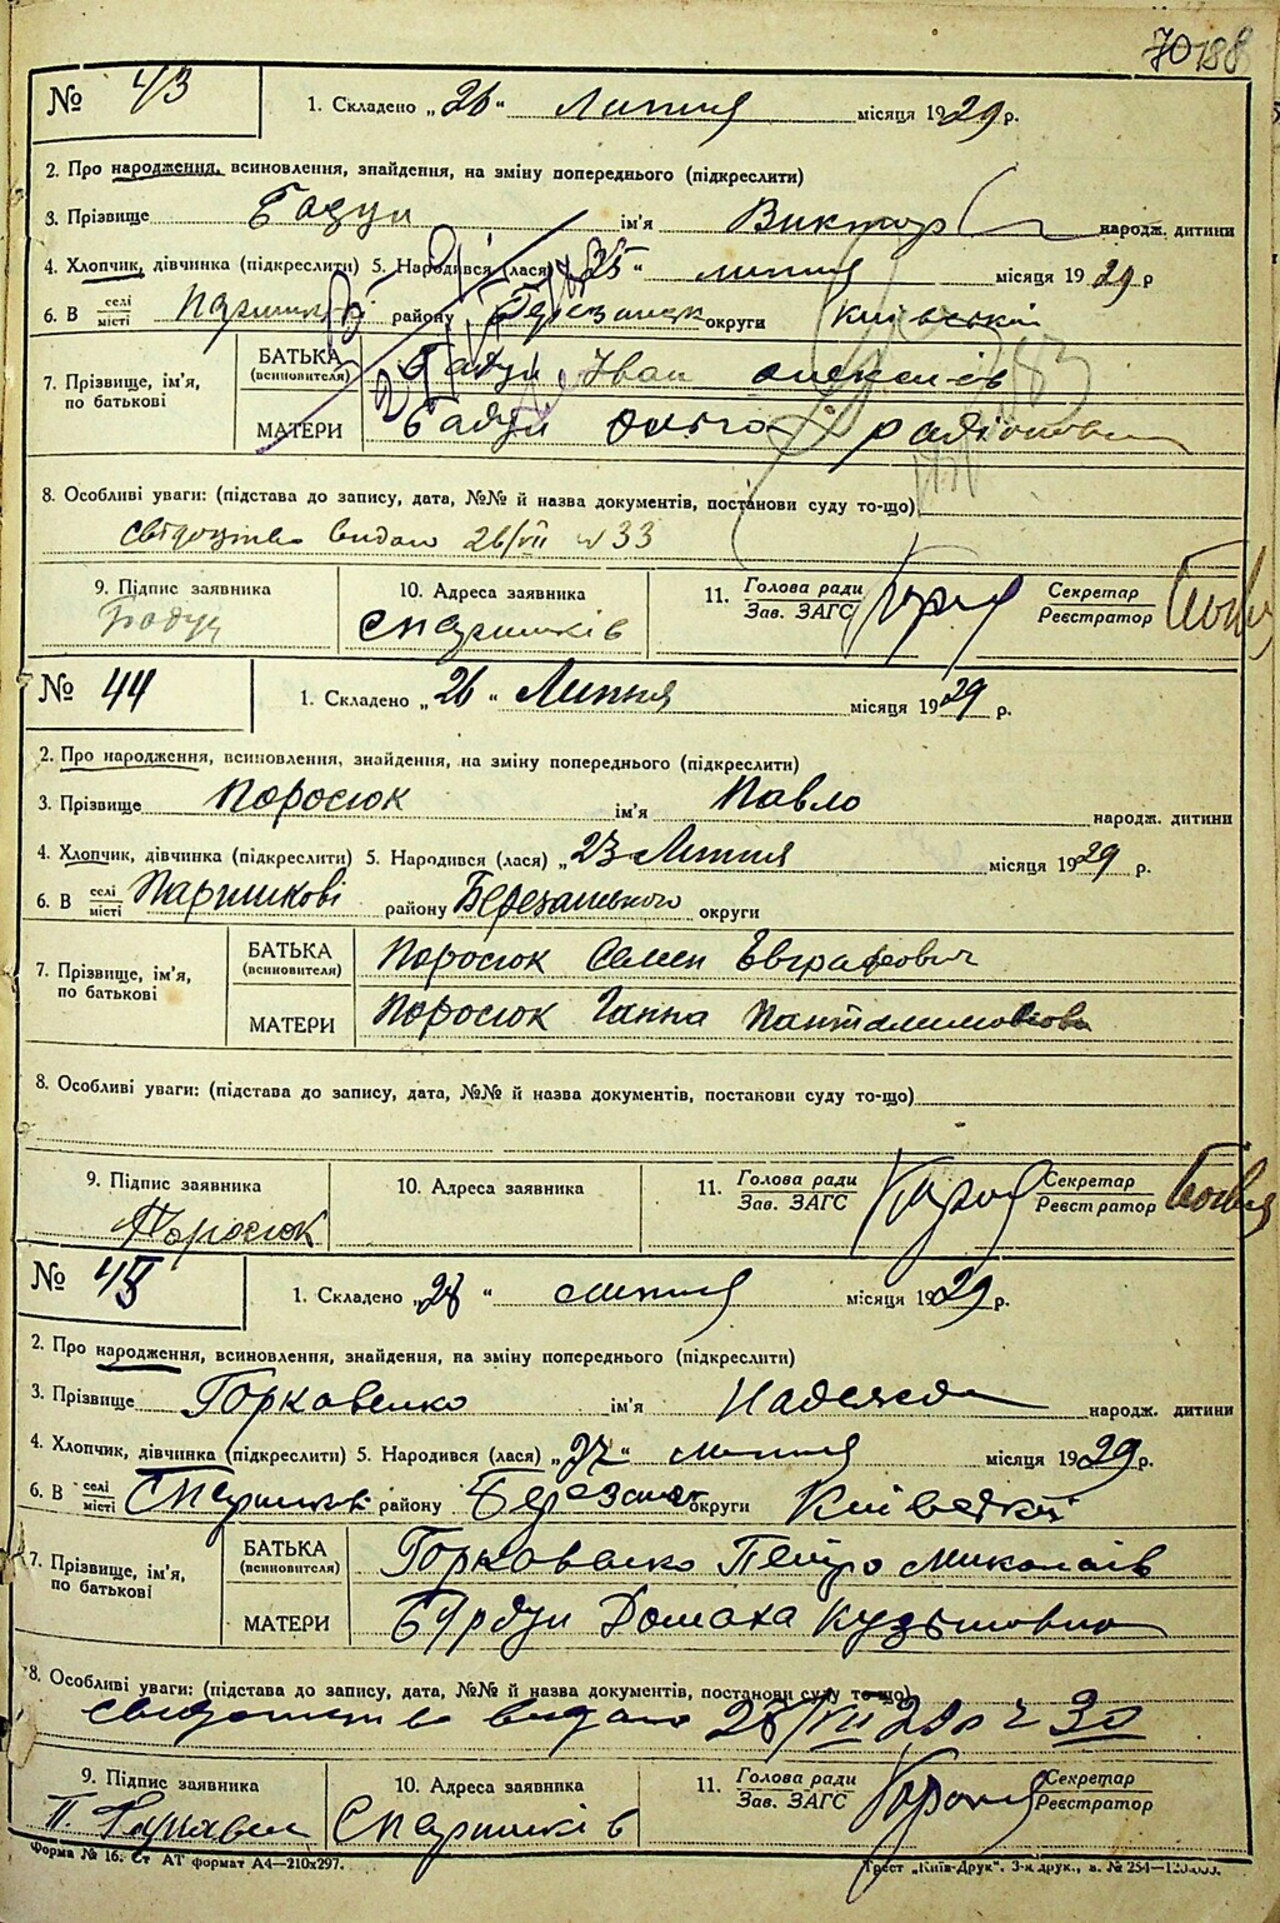 70 188
№ 43 1. Складено „26“ Липня місяця 1929 р.
2. Про народження, всиновлення, знайдення, на зміну попереднього (підкреслити)
3. Прізвище ім'я Виктор народж. дитини
4. Хлопчик, дівчинка (підкреслити) 5. Народився (лася) „25“ липня місяця 1929 р
6. В селі місті Паришкові району округи Київської
7. Прізвище, ім'я, по батькові
БАТЬКА (всиновителя) Іван
МАТЕРИ
8. Особливі уваги: (підстава до запису, дата, №№ й назва документів, постанови суду то-що)
видано 26/VII № 33
9. Підпис заявника 10. Адреса заявника 11. Голова ради Зав. ЗАГС Секретар Реєстратор
с Паришків
№ 44 1. Складено „26“ Липня місяця 1929 р.
2. Про народження, всиновлення, знайдення, на зміну попереднього (підкреслити)
3. Прізвище Поросюк ім'я Павло народж. дитини
4. Хлопчик, дівчинка (підкреслити) 5. Народився (лася) „23 Липня місяця 1929 р.
6. В селі місті Паришкові району Березанського округи
7. Прізвище, ім'я, по батькові
БАТЬКА (всиновителя) Поросюк Семен Евграфович
МАТЕРИ Поросюк Ганна
8. Особливі уваги: (підстава до запису, дата, №№ й назва документів, постанови суду то-що)
9. Підпис заявника 10. Адреса заявника 11. Голова ради Зав. ЗАГС Секретар Реєстратор
Поросюк
№ 45 1. Складено „28“ липня місяця 1929 р.
2. Про народження, всиновлення, знайдення, на зміну попереднього (підкреслити)
3. Прізвище Горкавенко ім'я Надежда народж. дитини
4. Хлопчик, дівчинка (підкреслити) 5. Народився (лася) „27“ липня місяця 1929 р.
6. В селі місті району округи Київської
7. Прізвище, ім'я, по батькові
БАТЬКА (всиновителя) Горкавенко Петро Миколаїв
МАТЕРИ Домаха Кузьмовна
8. Особливі уваги: (підстава до запису, дата, №№ й назва документів, постанови суду то-що)
видано 28/VII 29 р ч 30
9. Підпис заявника 10. Адреса заявника 11. Голова ради Зав. ЗАГС Секретар Реєстратор
П. С Паришків
Форма № 16. Ст АТ формат А4—210x297. Трест „Київ-Друк“. 3-я друк., з. № 254